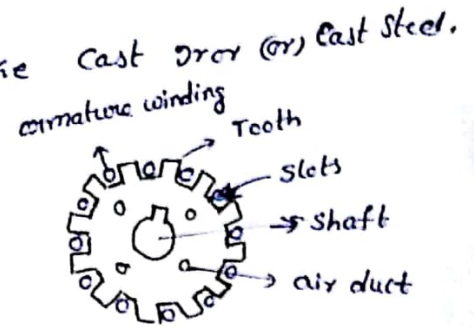 ie Cast Iron (or) Cast Steel.
armature winding
Tooth
Slots
Shaft
air duct